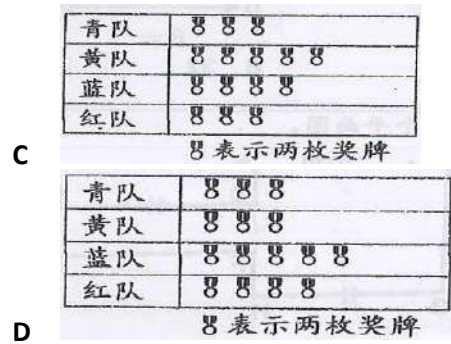 青队
黄队
蓝队
红队
C 表示两枚奖牌
青队
黄队
蓝队
红队
D 表示两枚奖牌